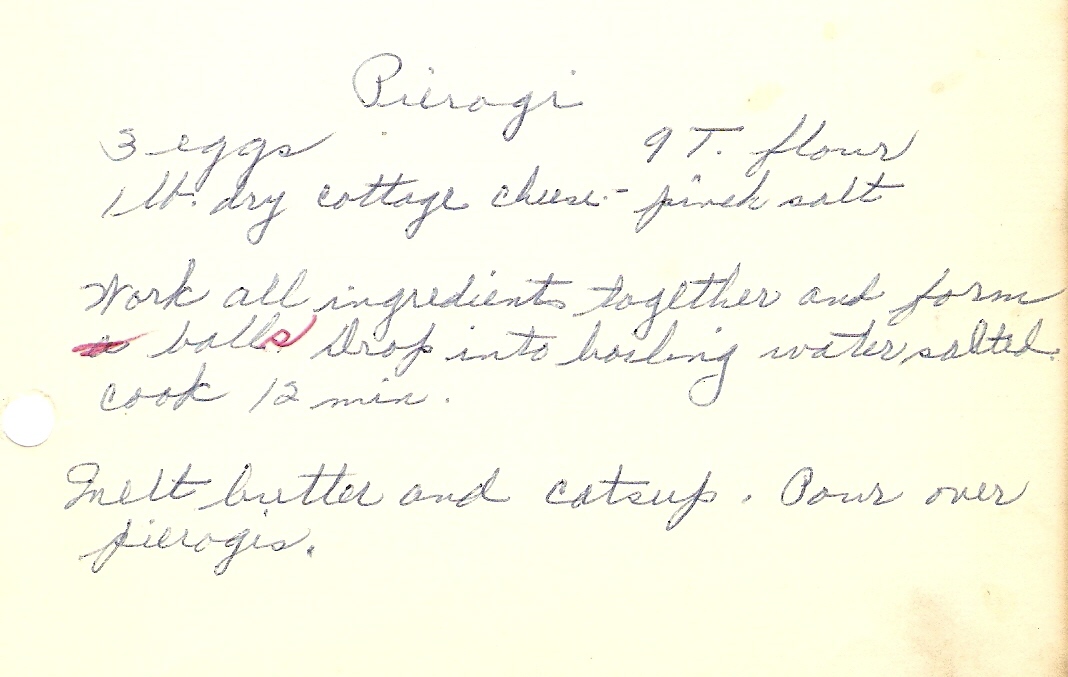 Pierogi
3 eggs 9 T. flour
1 lb. dry cottage cheese - pinch salt
Work all ingredients together and form
balls Drop into boiling water, salted.
cook 12 min.
Melt butter and catsup. Pour over
pierogis.